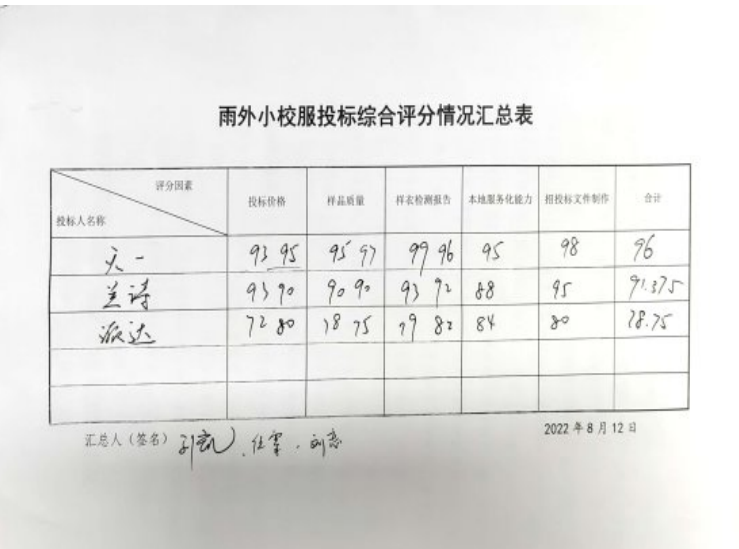 雨外小校服投标综合评分情况汇总表
评分因素
投标人名称
投标价格 样品质量 样衣检测报告 本地服务化能力 招投标文件制作 合计
天一 93 95 95 97 99 96 95 98 96
兰诗 93 90 90 90 93 92 88 95 91.375
派达 72 80 78 75 79 82 84 80 78.75
汇总人（签名）
2022年8月12日